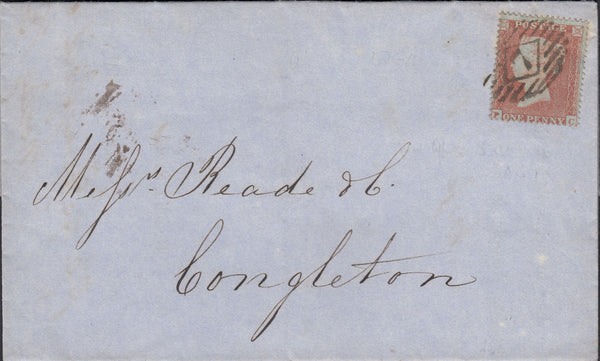 POSTAGE
ONE PENNY
Messrs. Reade & C.
Congleton